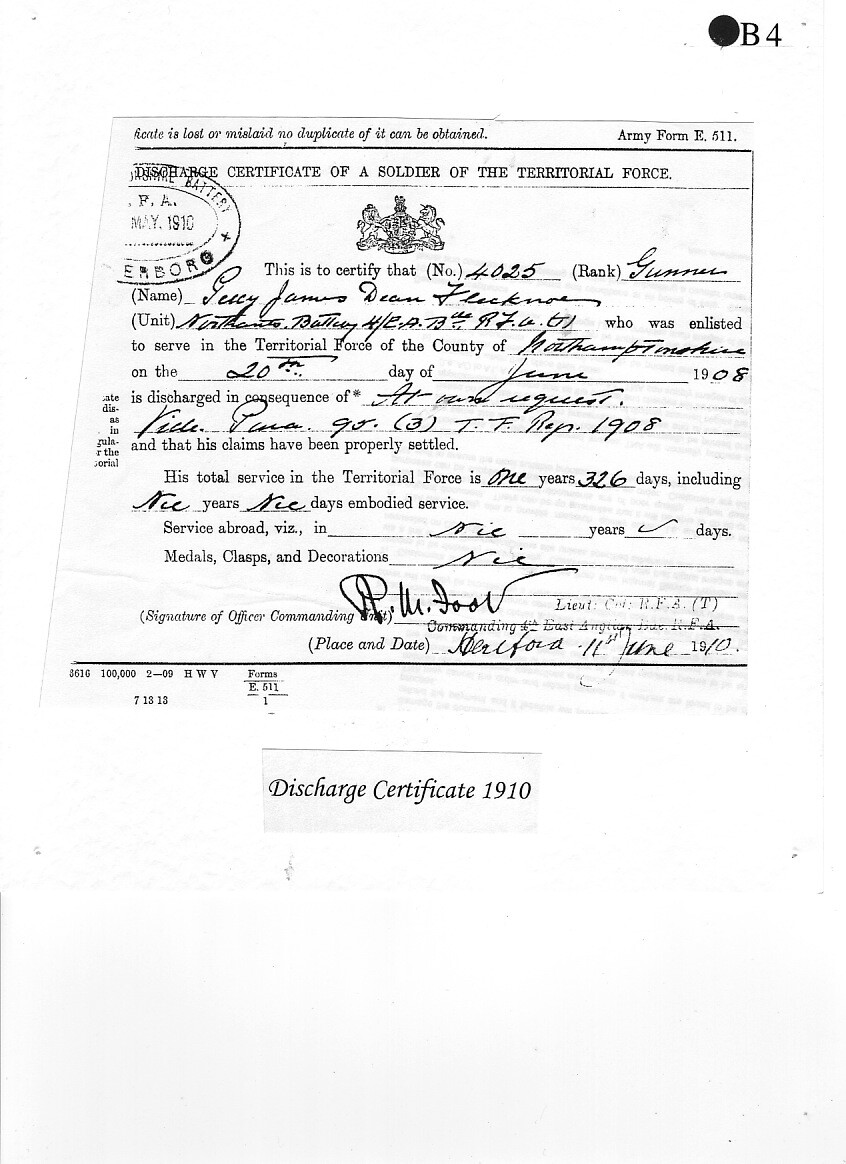 B4
ficate is lost or mislaid no duplicate of it can be obtained. Army Form E. 511.
DISCHARGE CERTIFICATE OF A SOLDIER OF THE TERRITORIAL FORCE.
BATTERY
. F. A.
MAY. 1910
ERBORO +
This is to certify that (No.) 4025 (Rank) Gunner
(Name) Percy James Dean Flecknoe
(Unit) Northants. Battery 4/E.A. Bde R.F.A. (T) who was enlisted
to serve in the Territorial Force of the County of Northamptonshire
on the 20th day of June 1908
is discharged in consequence of* At own request.
Vide. Para. 95. (3) T. F. Reg. 1908
and that his claims have been properly settled.
cate
dis-
as
in
gula-
r the
torial
His total service in the Territorial Force is One years 326 days, including
Nil years Nil days embodied service.
Service abroad, viz., in Nil years days.
Medals, Clasps, and Decorations Nil
(Signature of Officer Commanding Unit) Lieut: Col: R.F.A. (T)
Commanding 4th East Anglian Bde. R.F.A.
(Place and Date) Hertford 11th June 1910.
3616 100,000 2—09 H W V Forms
E. 511
7 13 13 1
Discharge Certificate 1910